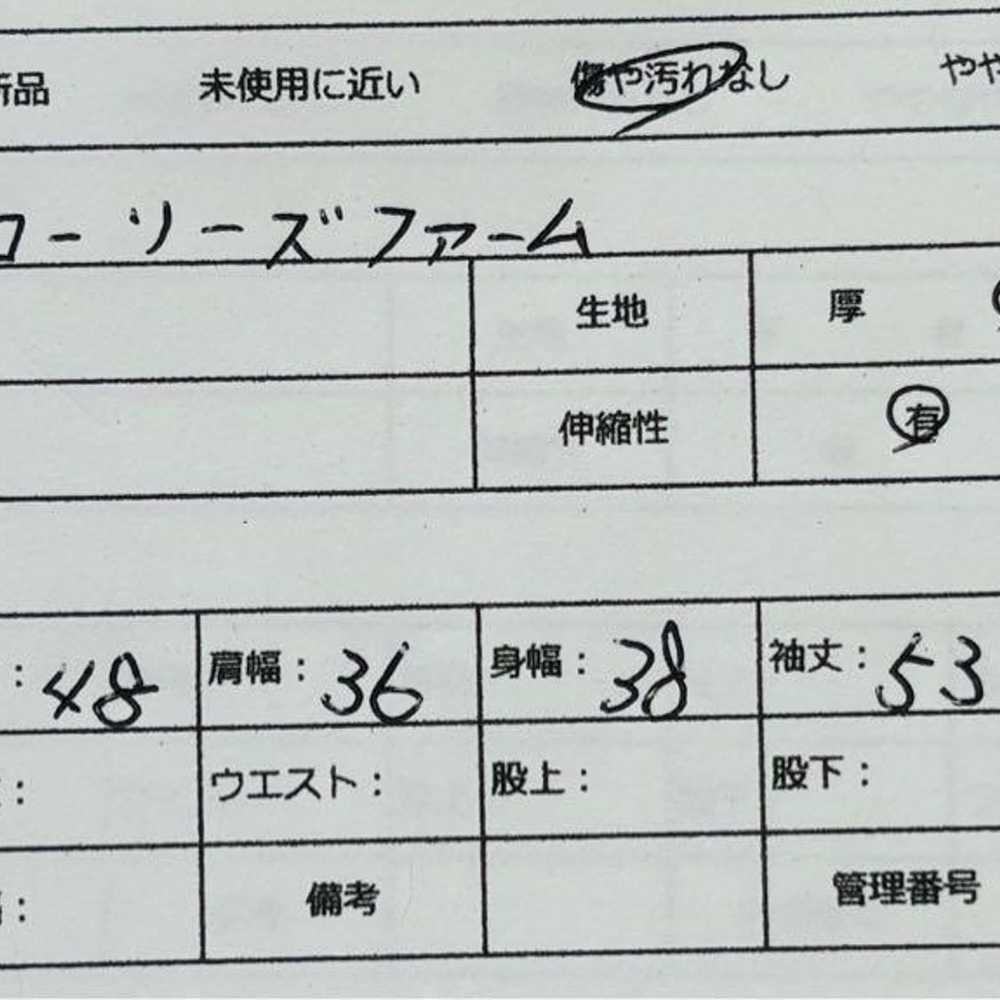 新品 未使用に近い 傷や汚れなし やや
ローリーズファーム
生地 厚
伸縮性 有
: 48 肩幅: 36 身幅: 38 袖丈: 53
: ウエスト: 股上: 股下:
: 備考 管理番号